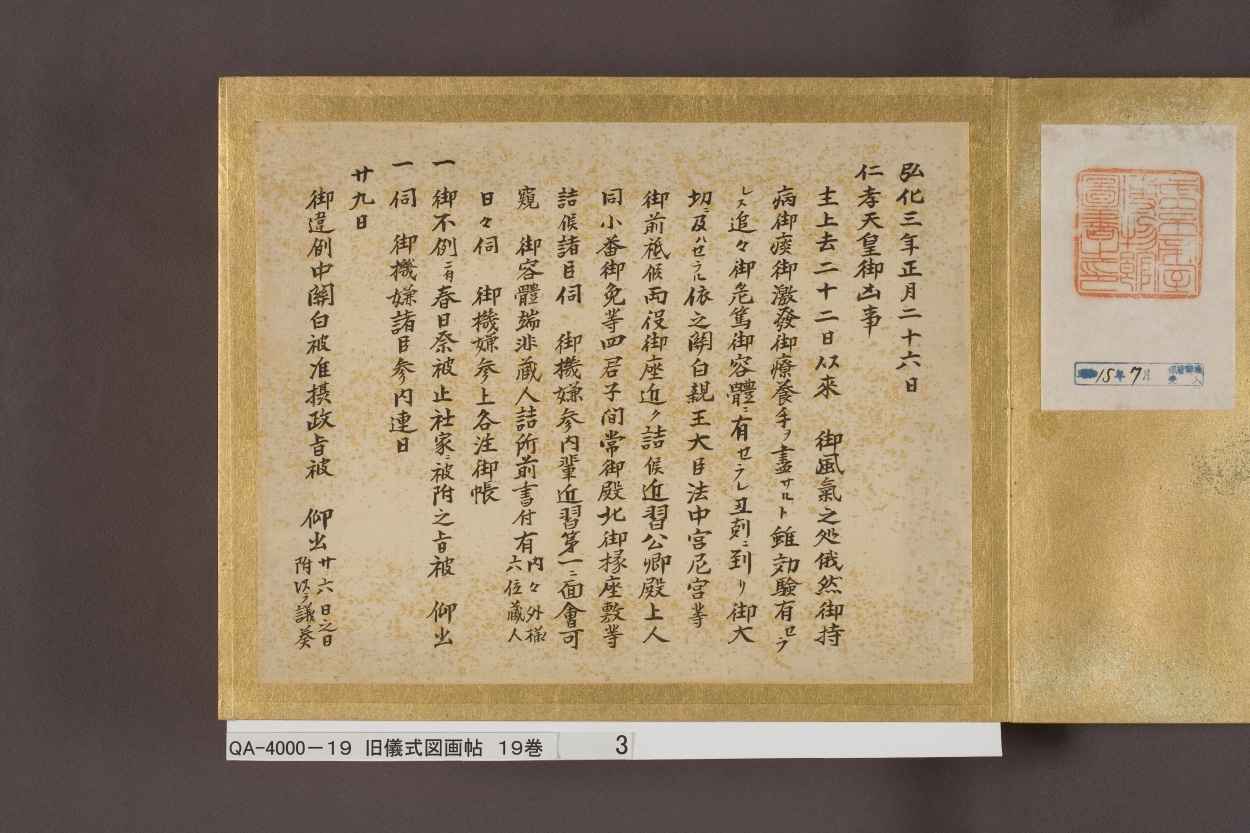 弘化三年正月二十六日
仁孝天皇御凶事
主上去二十二日以来　御風氣之処俄然御持
病御痰御激發御療養手ヲ盡サルト雖効験有セラ
レス追々御危篤御容體ニ有セラレ丑刻ニ到リ御大
切ニ及ハセラル依之關白親王大臣法中宮尼宮等
御前祗候両役御座近ク詰候近習公卿殿上人
同小番御免等四君子間常御殿北御椽座敷等
詰候諸臣伺　御機嫌参内輩近習第一ニ面會可
窺　御容體端非蔵人詰所前書付有内々外様六位蔵人
日々伺　御機嫌参上各注御帳
一　御不例ニ付春日祭被止社家ニ被附之旨被　仰出
一　伺　御機嫌諸臣参内連日
廿九日
御違例中關白被准摂政旨被　仰出廿六日之日附以ヲ議奏
15年7月
QA-4000－19　旧儀式図画帖　19巻　3